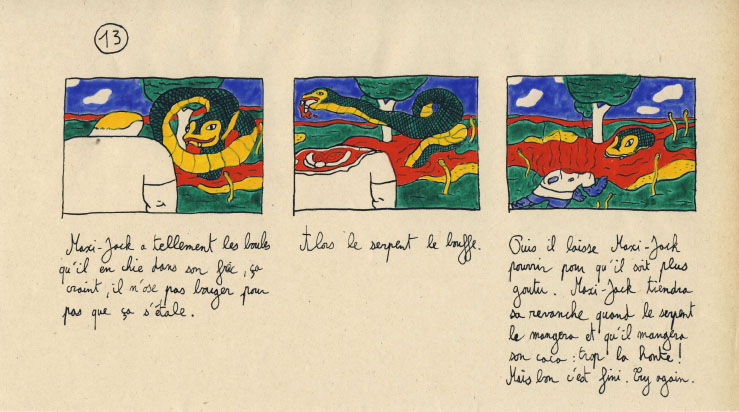 13
Maxi-Jack a tellement les boules
qu'il en chie dans son froc, ça
craint, il n'ose pas bouger pour
pas que ça s'étale.
Alors le serpent le bouffe.
Puis il laisse Maxi-Jack
pourrir pour qu'il soit plus
goutu. Maxi-Jack tiendra
sa revanche quand le serpent
le mangera et qu'il mangera
son caca : trop la honte !
Mais bon c'est fini. Try again.